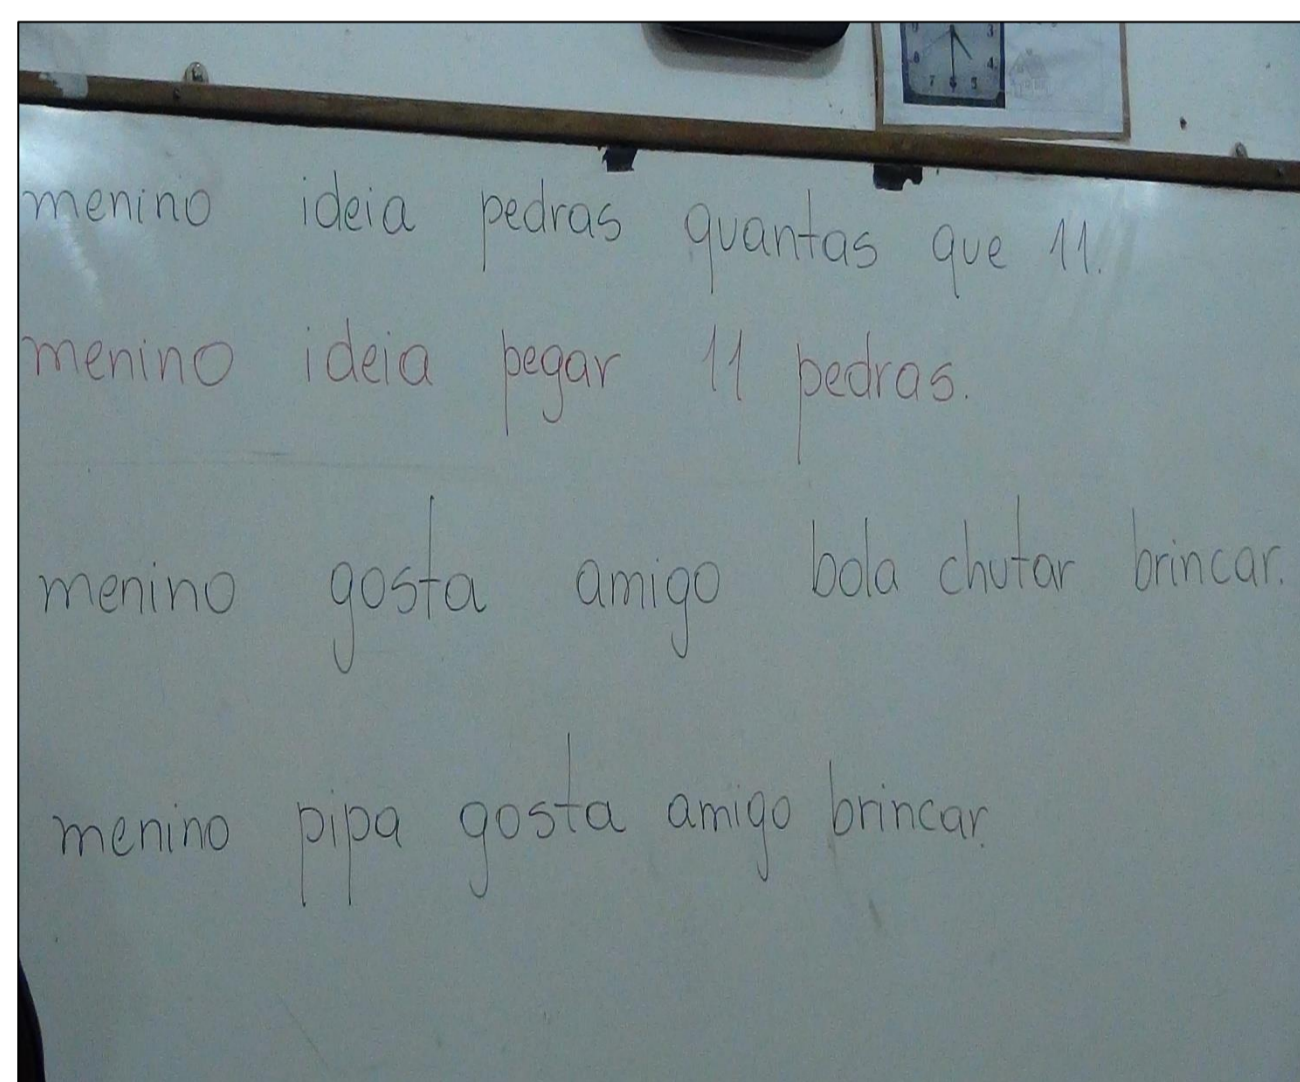 9 3
8 4
7 6 5
menino ideia pedras quantas que 11.
menino ideia pegar 11 pedras.
menino gosta amigo bola chutar brincar.
menino pipa gosta amigo brincar.